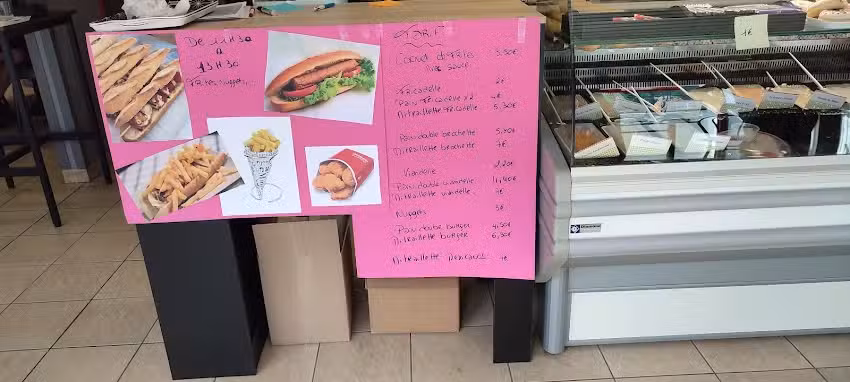 De 11H30
à
13H30
Frites, Nuggets...
TARIF
Cornet de frites 3,50€
avec sauce
Fricadelle 2€
Pain Fricadelle x2 4€
Mitraillette Fricadelle 5,50€
Pain double brochette
Mitraillette brochette 7€
Viandelle 2,20€
Pain double viandelle 4,40€
Mitraillette viandelle
Nuggets 3€
Pain double burger 4,50€
Mitraillette burger 6,50€
Mitraillette 4€
1€